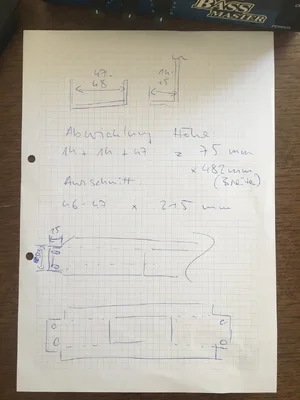 BASS
MASTER
47-
48
14
15
Abwicklung Höhe
14 + 14 + 47 = 75 mm
x 482 mm
(Breite)
Ausschnitt
46-47 x 215 mm
15